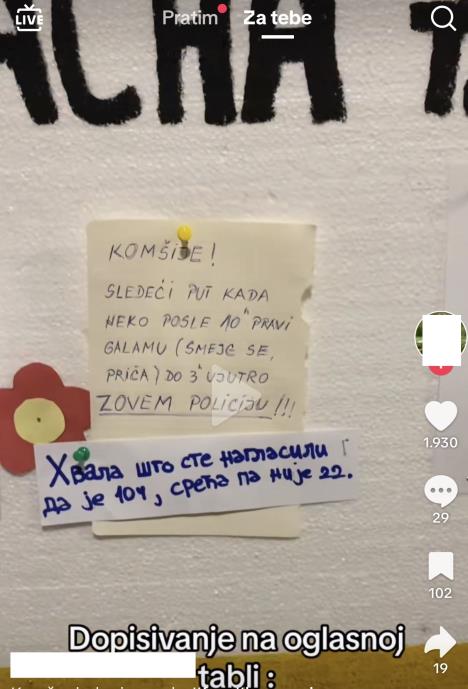 LIVE
Pratim
Za tebe
KOMŠIJE!
SLEDEĆI PUT KADA
NEKO POSLE 10h PRAVI
GALAMU (SMEJE SE,
PRIČA) DO 3h UJUTRO
ZOVEM POLICIJU!!!
Хвала што сте нагласили
да је 10ч, срећа па није 22.
1.930
29
102
19
Dopisivanje na oglasnoj
tabli :